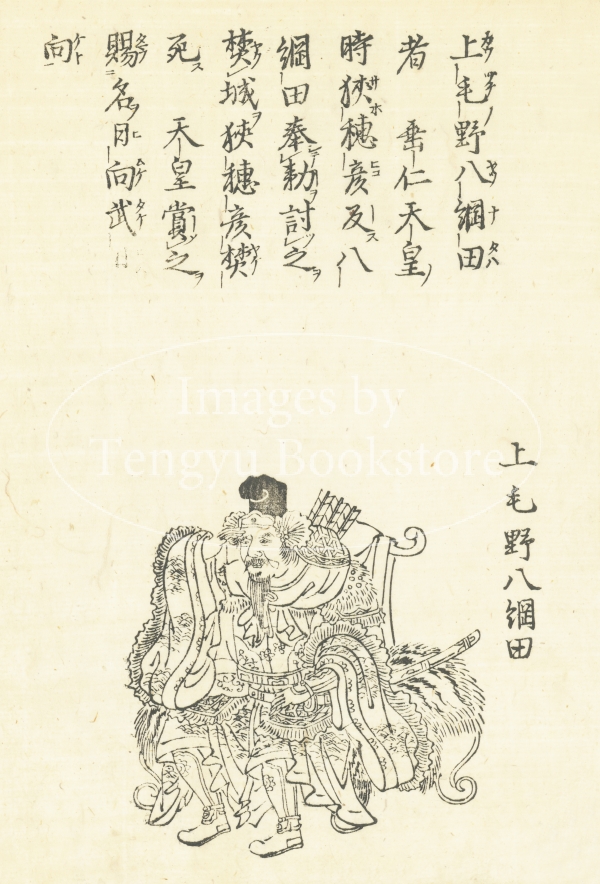 上毛野八綱田
者　垂仁天皇
時狹穗彦反八
綱田奉勅討之
焚城狹穗彦焚
死　天皇賞之
賜名日向武日
向
上毛野八綱田
Images by
Tengyu Bookstore